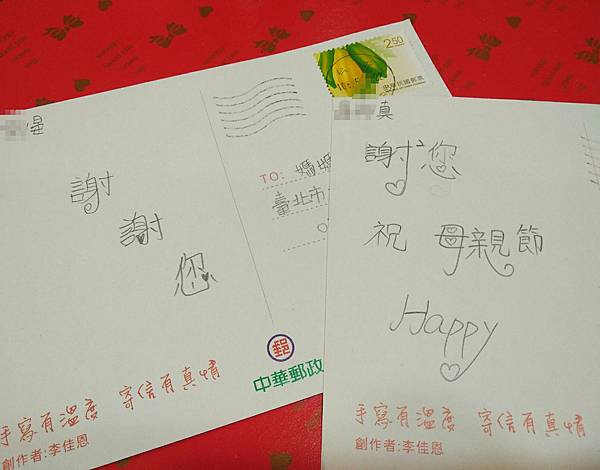 星
謝
謝
您
2.50
中華民國郵票
TO: 媽媽
臺北市
中華郵政
手寫有溫度 寄信有真情
創作者:李佳恩
真
謝²您
祝 母親節
Happy
手寫有溫度 寄信有真情
創作者:李佳恩